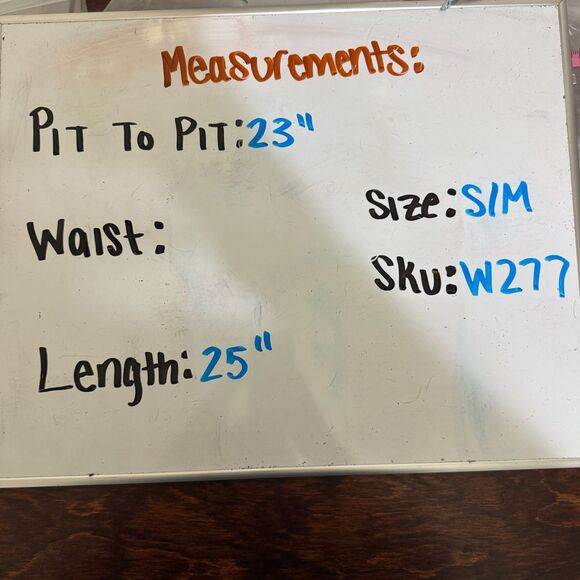 Measurements:
PIT TO PIT: 23"
Waist:
Size: S/M
Sku: W277
Length: 25"